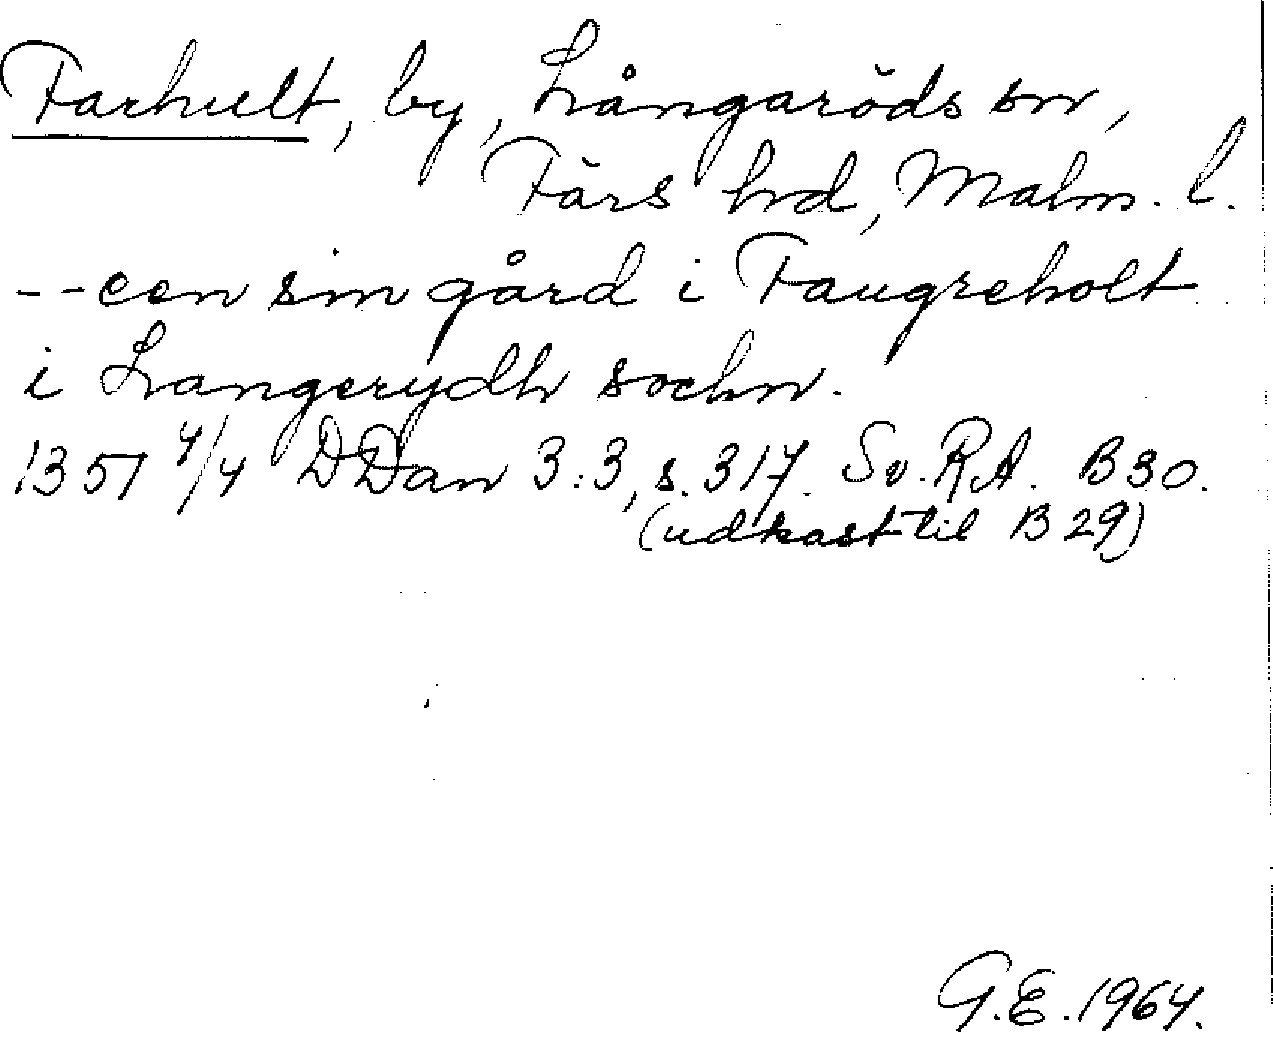 Farhult, by, Långaröds sn,
Färs hd, Malm. l.
-- een sin gård i Faugreholt
i Langerydh sochn.
1351 4/4 DDan 3:3, s. 317. Sv. RA. B30.
(udkast til B 29)
G.E. 1964.